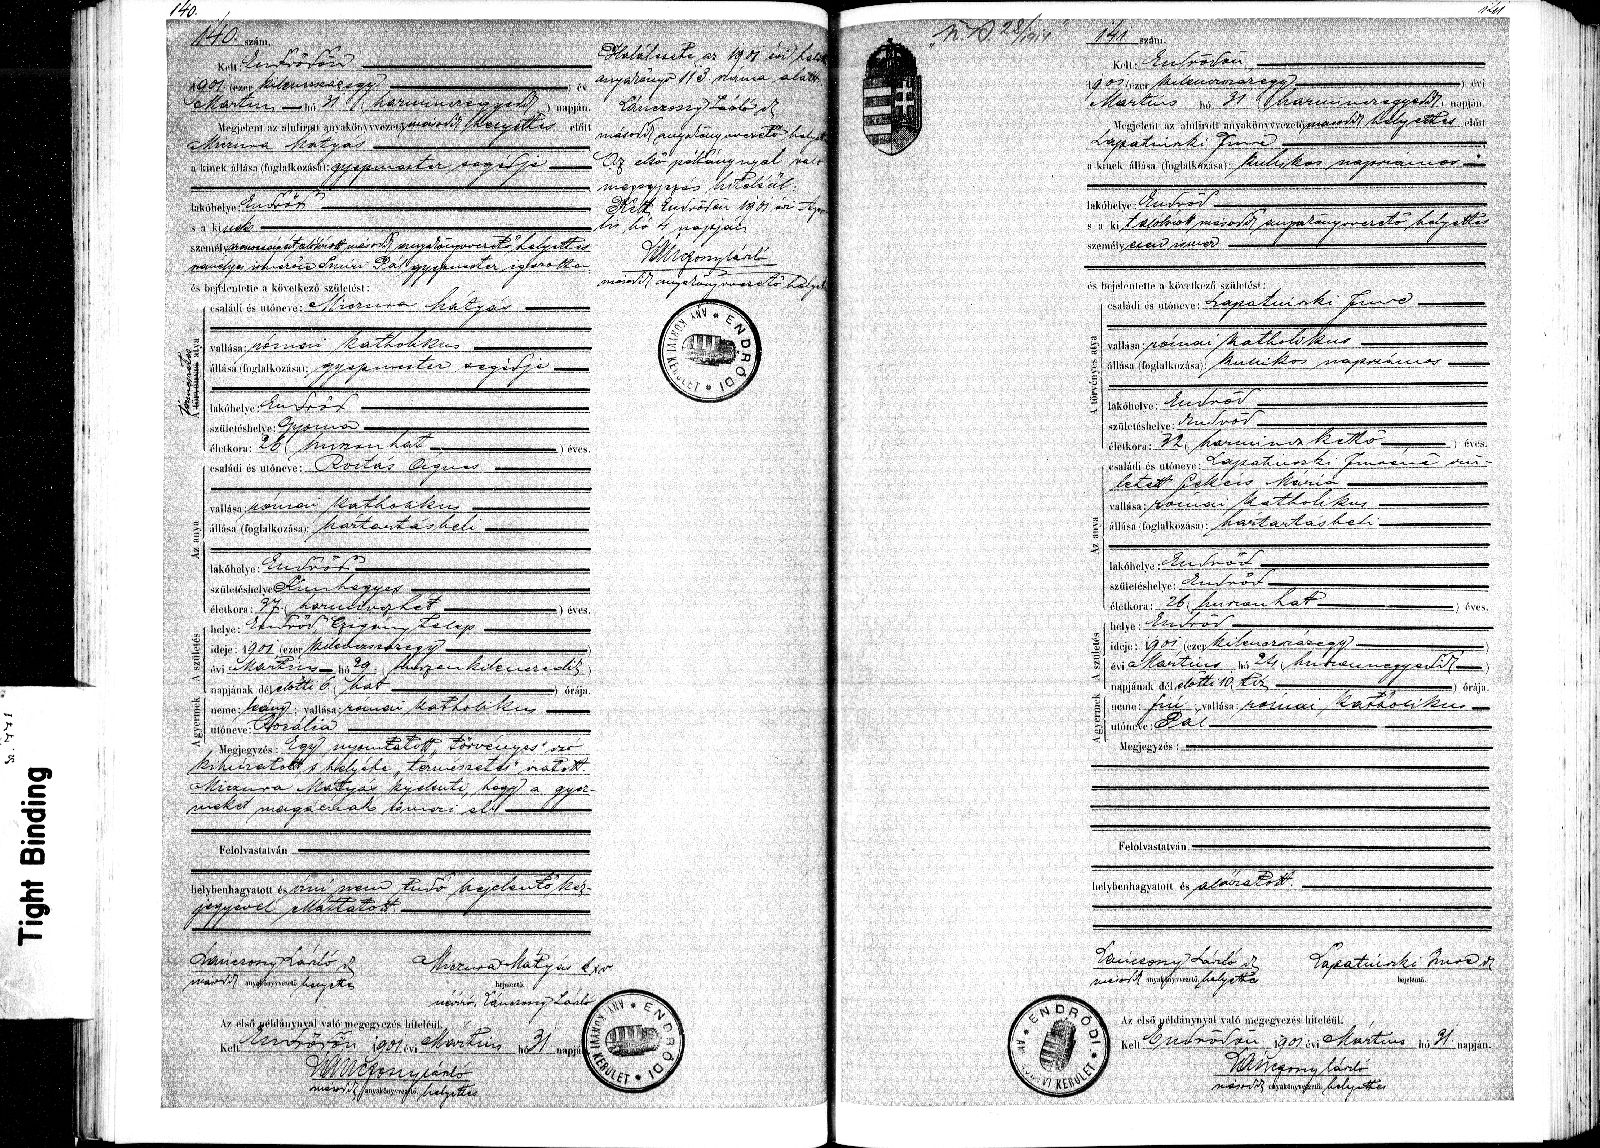 140.
140. szám.
Kelt Endrődön
1901 (ezer kilencszázegy) évi
Martius hó 31 (harminczegyedik) napján.
Megjelent az alulirott anyakönyvvezető második helyettes előtt
Miczura Mátyás
a kinek állása (foglalkozása): gyepmester segédje
lakóhelye: Endrőd
s a ki
személy
gyepmester igazolta
és bejelentette a következő születést:
A természetes atya
családi és utóneve: Miczura Mátyás
vallása: római katholikus
állása (foglalkozása): gyepmester segédje
lakóhelye: Endrőd
születéshelye: Gyoma
életkora: 26 (huszonhat) éves.
Az anya
családi és utóneve: Rostás Ágnes
vallása: római katholikus
állása (foglalkozása): háztartásbeli
lakóhelye: Endrőd
születéshelye: Kunhegyes
életkora: 37 (harminczhét) éves.
A születés
helye: Endrőd, Czigány telep
ideje: 1901 (ezer kilencszázegy)
évi Martius hó 29 (huszonkilenczedik)
napjának dél előtti 6 (hat) órája.
A gyermek
neme: leány; vallása: római katholikus
utóneve: Rozália
Megjegyzés: Egy nyomtatott "törvényes" szó
kihúzatott s helyébe "természetes" iratott.
Miczura Mátyás kijelenti, hogy a gyer-
meket magáénak ismeri el.
Felolvastatván
helybenhagyatott és írni nem tudó bejelentő kéz-
jegyével elláttatott.
Lánczony László
második anyakönyvvezető helyettes
Miczura Mátyás
bejelentő
névíró, Lánczony László
Az első példánynyal való megegyezés hiteléül.
Kelt Endrődön 1901 évi Martius hó 31 napján
Lánczony László
második anyakönyvvezető helyettes
Halálesete az 1901 évi halotti
anyakönyv 113 száma alatt.
Lánczony László
második anyakönyvvezető helyettes
Az első példánynyal való
megegyezés hiteléül.
Kelt Endrődön 1901 évi Ápri-
lis hó 4 napján
Lánczony László
második anyakönyvvezető helyettes
ENDRŐDI ANYAKÖNYVI KERÜLET
ENDRŐDI ANYAKÖNYVI KERÜLET
141
28/1914
141 szám.
Kelt: Endrődön
1901 (ezer kilencszázegy) évi
Martius hó 31 (harminczegyedik) napján.
Megjelent az alulirott anyakönyvvezető második helyettes előtt
Lapatinszki Imre
a kinek állása (foglalkozása): kubikos napszámos
lakóhelye: Endrőd
s a kit alólirott második anyakönyvvezető helyettes
személyesen ismer
és bejelentette a következő születést:
A törvényes atya
családi és utóneve: Lapatinszki Imre
vallása: római katholikus
állása (foglalkozása): kubikos napszámos
lakóhelye: Endrőd
születéshelye: Endrőd
életkora: 32 (harminczkettő) éves.
Az anya
családi és utóneve: Lapatinszki Imréné szü-
letett Mária
vallása: római katholikus
állása (foglalkozása): háztartásbeli
lakóhelye: Endrőd
születéshelye: Endrőd
életkora: 26 (huszonhat) éves.
A születés
helye: Endrőd
ideje: 1901 (ezer kilencszázegy)
évi Martius hó 24 (huszonnegyedik)
napjának dél előtti 10 tíz órája.
A gyermek
neme: fiú; vallása: római katholikus
utóneve: Pál
Megjegyzés:
Felolvastatván
helybenhagyatott és aláiratott.
Lánczony László
második anyakönyvvezető helyettes
Lapatinszki Imre
bejelentő.
Az első példánynyal való megegyezés hiteléül.
Kelt Endrődön 1901 évi Mártius hó 31 napján.
Lánczony László
második anyakönyvvezető helyettes
ENDRŐDI ANYAKÖNYVI KERÜLET
Tight Binding